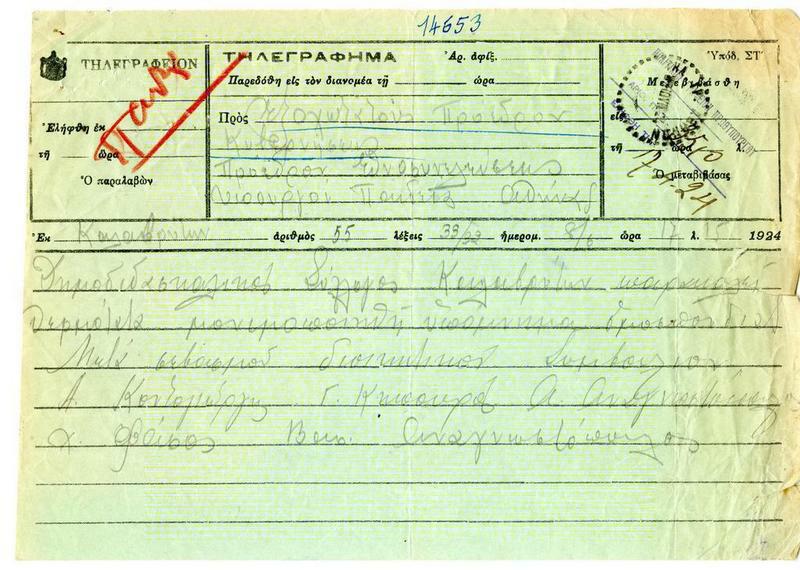 14653
ΤΗΛΕΓΡΑΦΕΙΟΝ
Ἐλήφθη ἐκ
τῇ ὥρα
Ὁ παραλαβών
ΤΗΛΕΓΡΑΦΗΜΑ Ἀρ. ἀφίξ.
Παρεδόθη εἰς τὸν διανομέα τῇ ὥρα
Πρὸς Ἐξοχώτατους Πρόεδρον
Κυβερνήσεως
Πρόεδρον Ἐθνοσυνελεύσεως
Ὑπουργὸν Παιδείας Ἀθήνας
Ὑπόδ. ΣΤ΄
Μετεβιβάσθη
εἰς
τῇ ὥρα λ.
Ὁ μεταβιβάσας
Ἐκ Καλαβρύτων ἀριθμὸς 55 λέξεις 33/33 ἡμερομ. 8/6 ὥρα 17 λ. 15 1924
Δημοδιδασκαλικὸς Σύλλογος Καλαβρύτων παρακαλεῖ
θερμότατα
Μετὰ σεβασμοῦ διοικητικὸν Συμβούλιον
Α. Γ. Α. Ἀναγνωστόπουλος
Χ. Βασ. Ἀναγνωστόπουλος